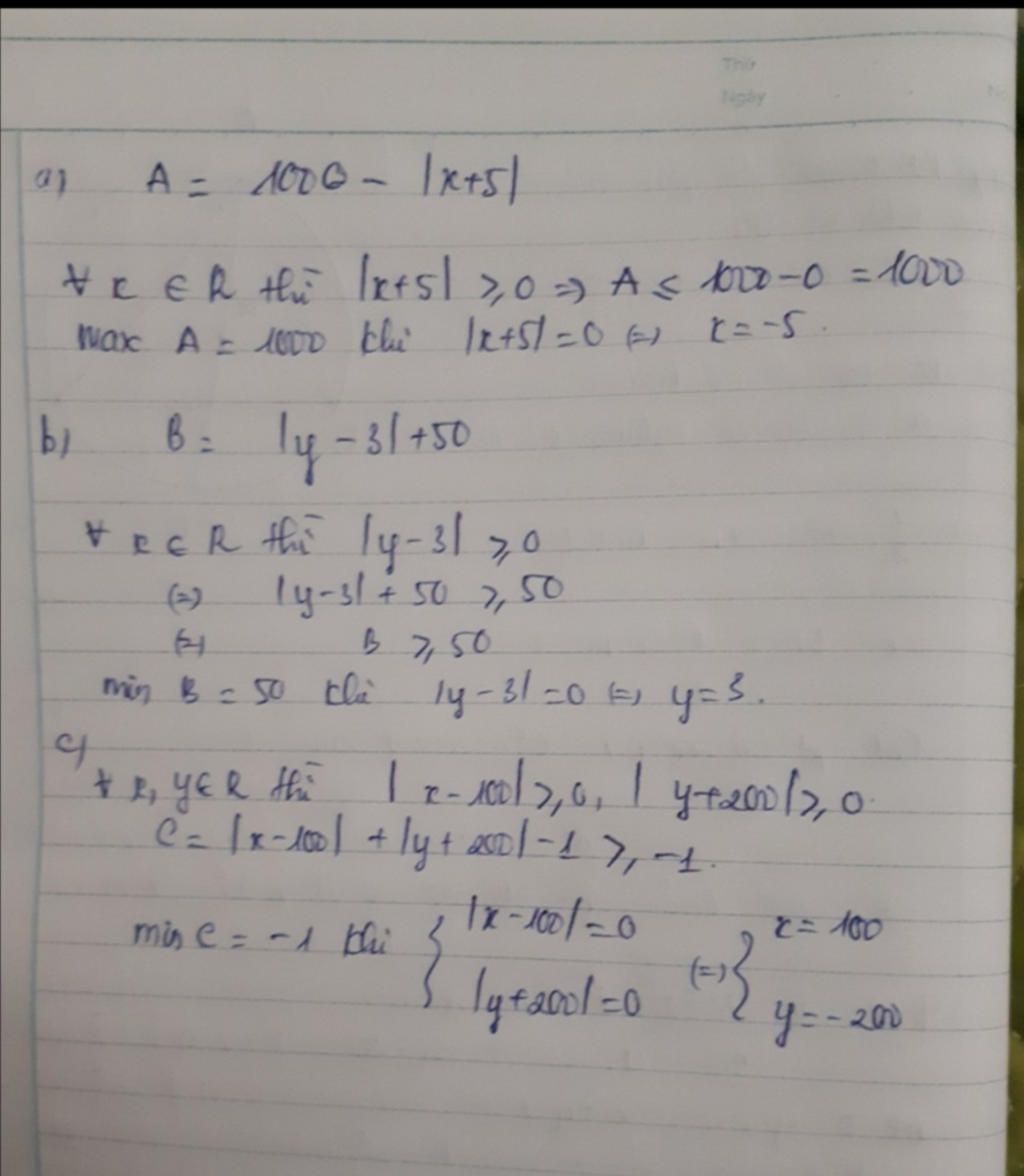 Thứ
Ngày
a) A = 1000 - |x+5|
∀ x ∈ R thì |x+5| ≥ 0 => A ≤ 1000-0 = 1000
max A = 1000 khi |x+5| = 0 (=) x = -5.
b) B = |y - 3| + 50
∀ x ∈ R thì |y-3| ≥ 0
(=) |y-3| + 50 ≥ 50
(=) B ≥ 50
min B = 50 khi |y-3| = 0 (=) y = 3.
c)
∀ x, y ∈ R thì |x-100| ≥ 0, |y+200| ≥ 0.
C = |x-100| + |y+200| - 1 ≥ -1.
min C = -1 khi { |x-100| = 0 (=) { x = 100
|y+200| = 0 y = -200